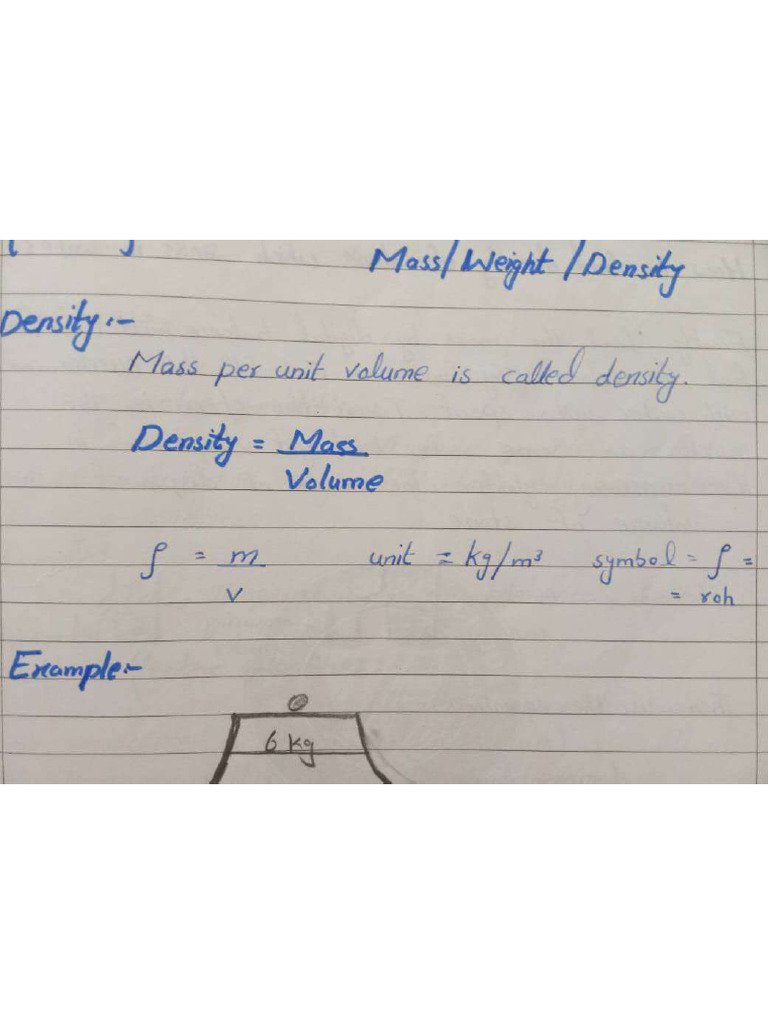 Mass/Weight/Density
Density:-
Mass per unit volume is called density.
Density = Mass
Volume
ρ = m unit = kg/m³ symbol = ρ =
v = roh
Example:-
6 kg